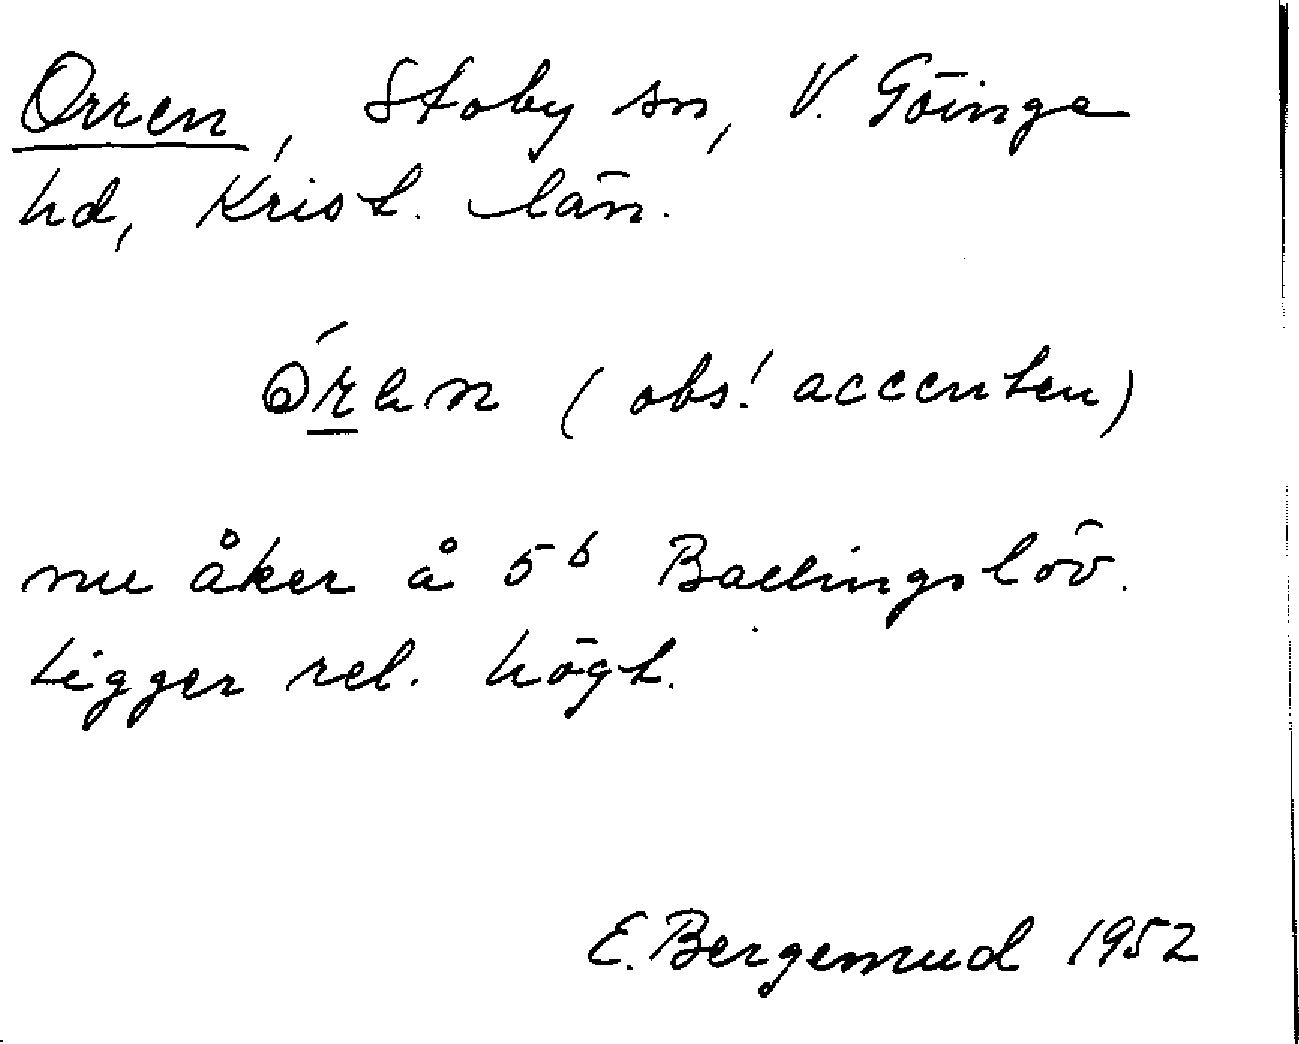 Orren, Stoby sn, V. Göinge
hd, Krist. län.
óren (obs! accenten)
nu åker å 5b Ballingslöv.
Ligger rel. högt.
E. Bergenrud 1952